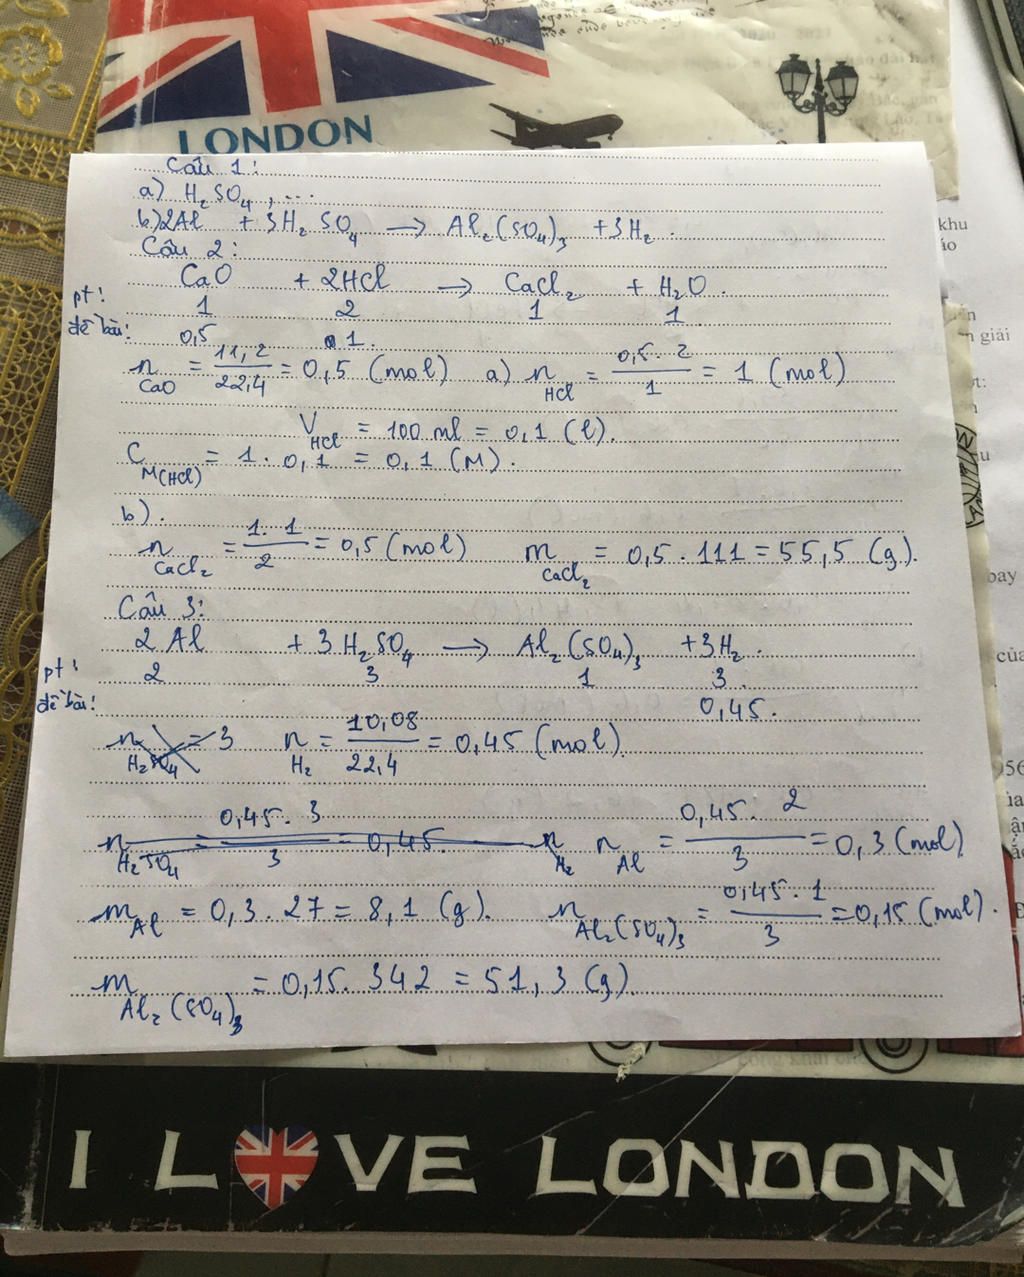 LONDON
khu
Câu 1:
a) H₂SO₄, ...
b) 2Al + 3H₂SO₄ → Al₂(SO₄)₃ + 3H₂.
Câu 2:
CaO + 2HCl → CaCl₂ + H₂O.
pt: 1 2 1 1
đề bài: 0,5 1.
n CaO = 11,2 / 22,4 = 0,5 (mol) a) n HCl = 0,5 . 2 / 1 = 1 (mol)
giải
V HCl = 100 ml = 0,1 (l).
C M(HCl) = 1 . 0,1 = 0,1 (M).
b).
n CaCl₂ = 1 . 1 / 2 = 0,5 (mol) m CaCl₂ = 0,5 . 111 = 55,5 (g).
bay
Câu 3:
2Al + 3H₂SO₄ → Al₂(SO₄)₃ + 3H₂.
của
pt: 2 3 1 3
đề bài: 0,45.
n H₂SO₄ = 3 n H₂ = 10,08 / 22,4 = 0,45 (mol)
n H₂SO₄ = 0,45 . 3 / 3 = 0,45. n H₂ n Al = 0,45 . 2 / 3 = 0,3 (mol)
m Al = 0,3 . 27 = 8,1 (g). n Al₂(SO₄)₃ = 0,45 . 1 / 3 = 0,15 (mol).
m Al₂(SO₄)₃ = 0,15 . 342 = 51,3 (g)
I LOVE LONDON